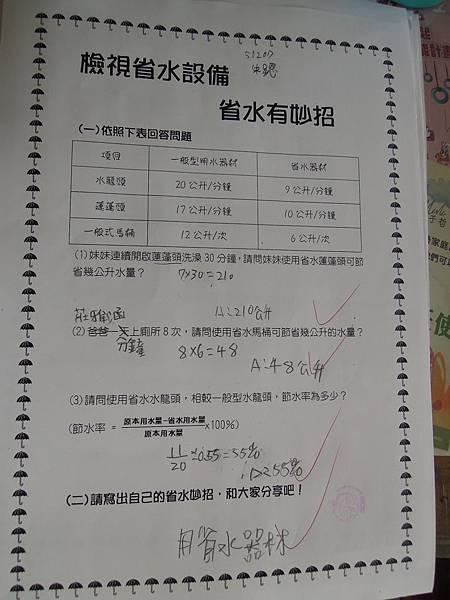 51207
朱鍶
檢視省水設備
省水有妙招
(一)依照下表回答問題
項目 一般型用水器材 省水器材
水龍頭 20公升/分鐘 9公升/分鐘
蓮蓬頭 17公升/分鐘 10公升/分鐘
一般式馬桶 12公升/次 6公升/次
(1)妹妹連續開啟蓮蓬頭洗澡30分鐘,請問妹妹使用省水蓮蓬頭可節
省幾公升水量?
7×30=210
A:210公升
莊雅涵
(2)爸爸一天上廁所8次,請問使用省水馬桶可節省幾公升的水量?
分鐘
8×6=48
A:48公升
(3)請問使用省水水龍頭,相較一般型水龍頭,節水率為多少?
(節水率 = 原本用水量-省水用水量/原本用水量 x100%)
11/20=0.55=55%
A:55%
(二)請寫出自己的省水妙招,和大家分享吧!
用省水器材